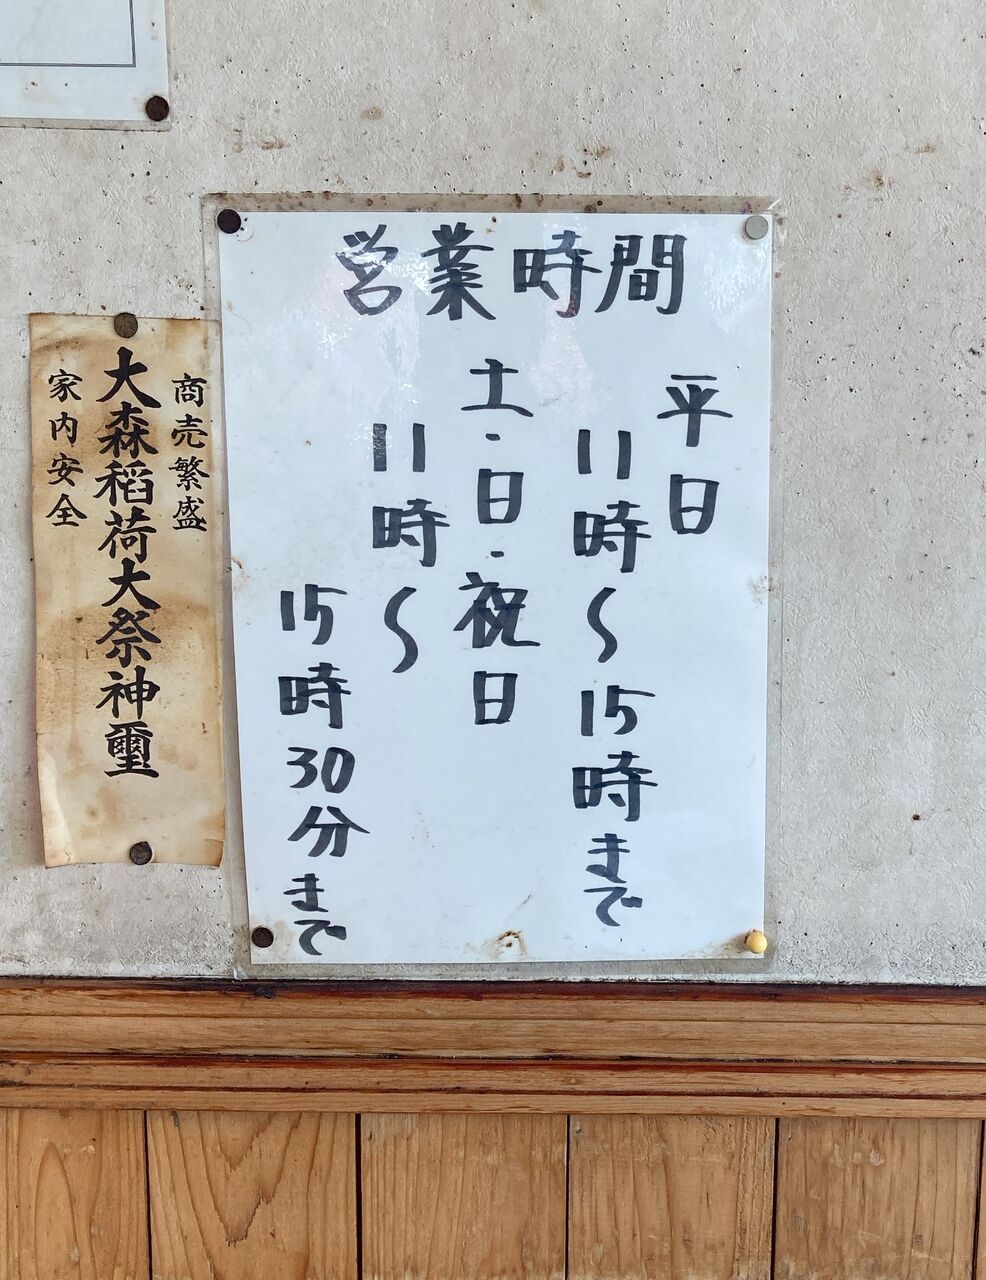 営業時間
平日
11時〜15時まで
土・日・祝日
11時〜
15時30分まで
商売繁盛
大森稲荷大祭神璽
家内安全